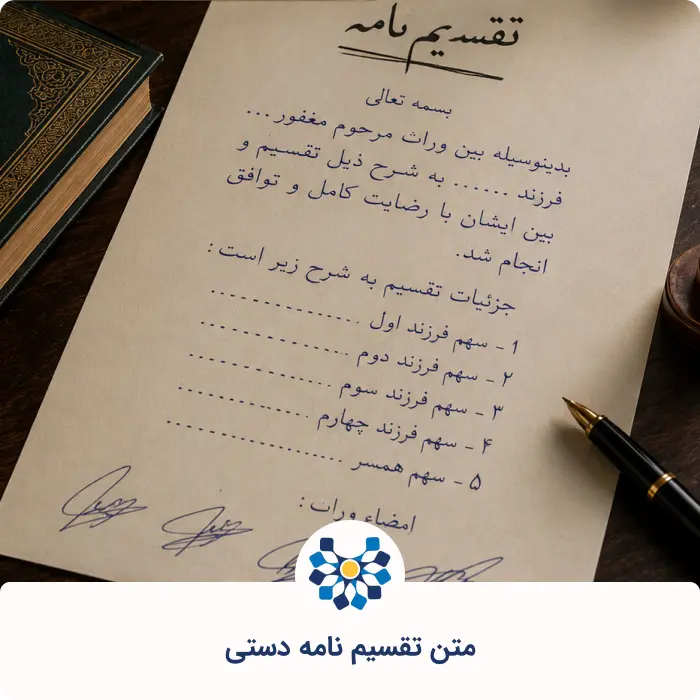 تقسیم نامه
بسمه تعالی
بدینوسیله بین وراث مرحوم مغفور ...
فرزند ...... به شرح ذیل تقسیم و
بین ایشان با رضایت کامل و توافق
انجام شد.
جزئیات تقسیم به شرح زیر است :
۱ - سهم فرزند اول ................
۲ - سهم فرزند دوم ................
۳ - سهم فرزند سوم ................
۴ - سهم فرزند چهارم ..............
۵ - سهم همسر ....................
امضاء وراث :
متن تقسیم نامه دستی